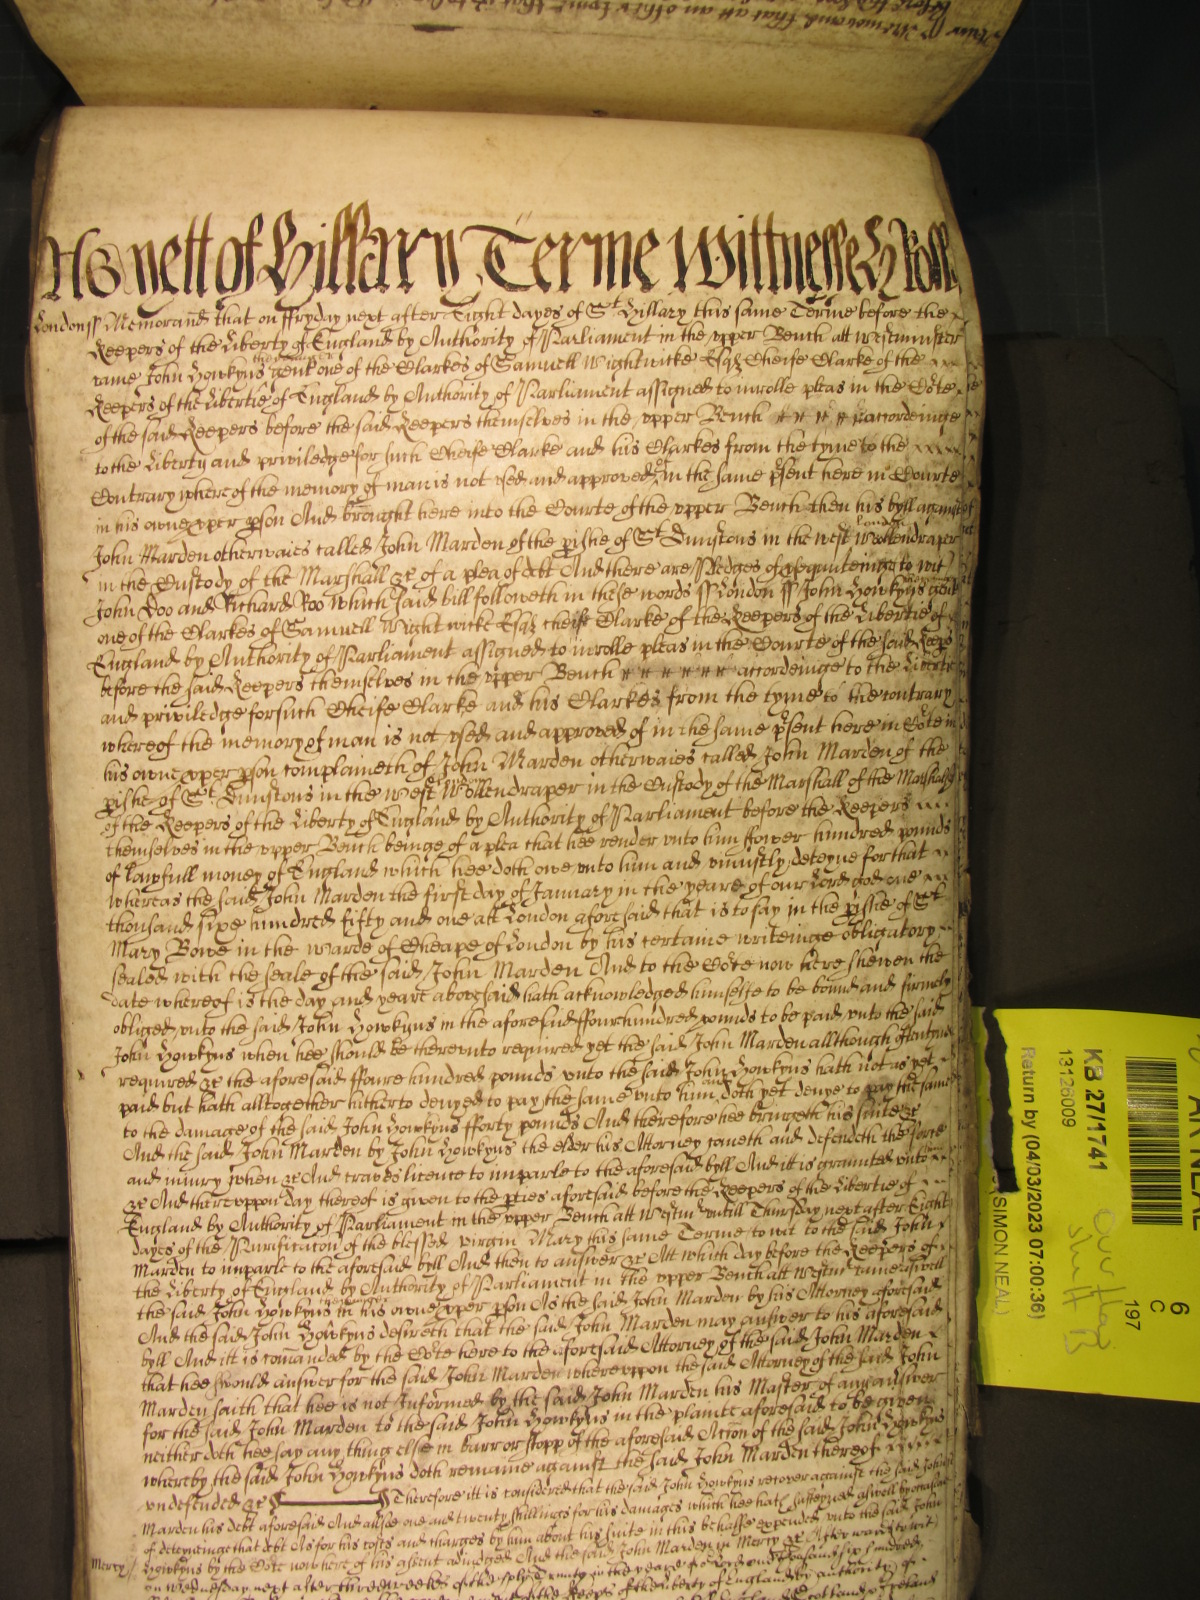 As yett of Hillary Terme Wittnesseth Roll
London ss Memorand that on ffryday next after Eight dayes of St Hillary this same Terme before the
Keepers of the Liberty of England by Authority of Parliament in the upper Bench att Westminster
came John Howkyns the younger gent one of the Clarkes of Samuell Wightwicke Esqz Cheife Clarke of the
Keepers of the Libertie of England by Authority of Parliament assigned to inrolle pleas in the Cote
of the said Keepers before the said Keepers themselves in the upper Bench accordeinge
to the Liberty and priviledge for such Cheife Clarke and his Clarkes from the tyme to the
Contrary whereof the memory of man is not used and approved of in the same psent here in Courte
in his owne pper pson And brought here into the Courte of the upper Bench then his byll against
John Marden otherwaies called John Marden of the pishe of St Dunstons in the west London Wollendraper
in the Custody of the Marshall &c of a plea of debt And there are Pledges of psequuteinge to wit
John Doo and Richard Roo Which said bill followeth in these words ss London ss John Howkyns gent
one of the Clarkes of Samuell Wightwicke Esqz cheife Clarke of the Keepers of the Libertie of
England by Authority of Parliament assigned to inrolle pleas in the Courte of the said Keeps
before the said Keepers themselves in the upper Bench accordeinge to the Libertie
and priviledge for such Cheife Clarke and his Clarkes from the tyme to the contrary
whereof the memory of man is not used and approved of in the same psent here in Cote in
his owne pper pson complaineth of John Marden otherwaies called John Marden of the
pishe of St Dunstons in the west London Wollendraper in the Custody of the Marshall of the Marshalls
of the Keepers of the Liberty of England by Authority of Parliament before the Keepers
themselves in the upper Bench beinge of a plea that hee render unto him ffower hundred pounds
of lawfull money of England which hee doth owe unto him and uniustly deteyne for that
whereas the said John Marden the first day of January in the yeare of our Lord god one
thousand sixe hundred fifty and one att London aforesaid that is to say in the pishe of St
Mary Bowe in the Warde of Cheape of London by his certaine writeinge obligatory
sealed with the seale of the said John Marden And to the Cote now here shewen the
date whereof is the day and yeare abovesaid hath acknowledged himselfe to be bound and firmely
obliged unto the said John Howkyns in the aforesaid ffourehundred pounds to be paid unto the said
John Howkyns when hee should be thereunto required yet the said John Marden although oftentymes
required &c the aforesaid ffoure hundred pounds unto the said John Howkyns hath not as yet
paid but hath alltogether hitherto denyed to pay the same unto him and doth yet denye to pay the same
to the damage of the said John Howkyns fforty pounds And therefore hee bringeth his suite &c
And the said John Marden by John Howkyns the elder his Attorney cometh and defendeth the force
and iniury when &c And craves licence to imparle to the aforesaid byll And itt is graunted unto
&c And thereuppon day thereof is given to the pties aforesaid before the Keepers of the Libertie of
England by Authority of Parliament in the upper Bench att Westm untill Thursday next after Eight
dayes of the Purificacon of the blessed virgin Mary this same Terme to wit to the said John
Marden to imparle to the aforesaid byll And then to answer &c Att which day before the Keepers of
the Liberty of England by Authority of Parliament in the upper Bench att Westm came aswell
the said John Howkyns the younger in his owne pper pson As the said John Marden by his Attorney aforesaid
And the said John Howkyns desireth that the said John Marden may answer to his aforesaid
byll And itt is comanded by the Cote here to the aforesaid Attorney of the said John Marden
that hee should answer for the said John Marden whereuppon the said Attorney of the said John
Marden saith that hee is not Informed by the said John Marden his Master of any answer
for the said John Marden to the said John Howkyns in the plainte aforesaid to be given
neither doth hee say any thing else in barr or stopp of the aforesaid Accon of the said John Howkyns
whereby the said John Howkyns doth remaine against the said John Marden thereof
undefended &c Therefore itt is considered that the said John Howkyns recover against the said John
Marden his debt aforesaid And allsoe one and twenty shillings for his damages which hee hath susteyned aswell by occasion
of deteyneinge that debt As for his costs and charges by him about his suite in this behalfe expended unto the said John
Mercy Howkyns by the Cote now here of his assent adiudged And the said John Marden in Mercy &c Afterwards to wit
on Wednesday next after three weekes of the holy Trinity in the yeare of o Lord one thousand six hundred
the Keeps of the liberty of England by authority of
KB 27/1741
13126009
Return by (04/03/2023 07:00:36)
(SIMON NEAL)
6
C
197